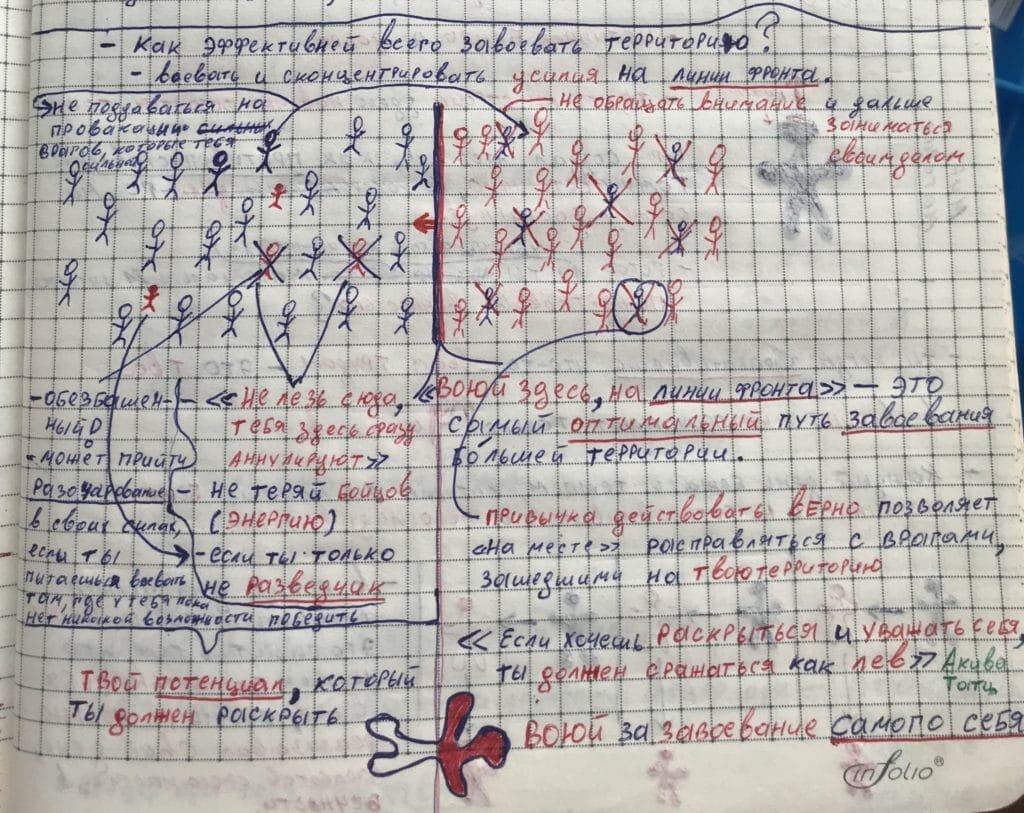 - Как эффективней всего завоевать территорию?
- воевать и сконцентрировать усилия на линии фронта.
не поддаваться на
провакации сильных
врагов, которые тебя
сильнее
не обращать внимание и дальше
заниматься
своим делом
-обезбашен-
ный
-может прийти
разочарование
в своих силах,
если ты
питаешься воевать
там, где у тебя пока
нет никакой возможности победить
- «Не лезь сюда,
тебя здесь сразу
аннулируют»
- не теряй бойцов
(энергию)
- если ты только
не разведчик
«Воюй здесь, на линии фронта» - это
самый оптимальный путь завоевания
большей территории.
- привычка действовать верно позволяет
«на месте» расправляться с врагами,
зашедшими на твою территорию
«Если хочешь раскрыться и уважать себя,
ты должен сражаться как лев» Акива
Татц
Твой потенциал, который
ты должен раскрыть
Воюй за завоевание самого себя
infolio®